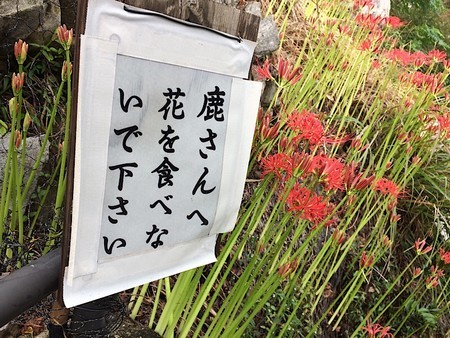 鹿さんへ
花を食べな
いで下さい